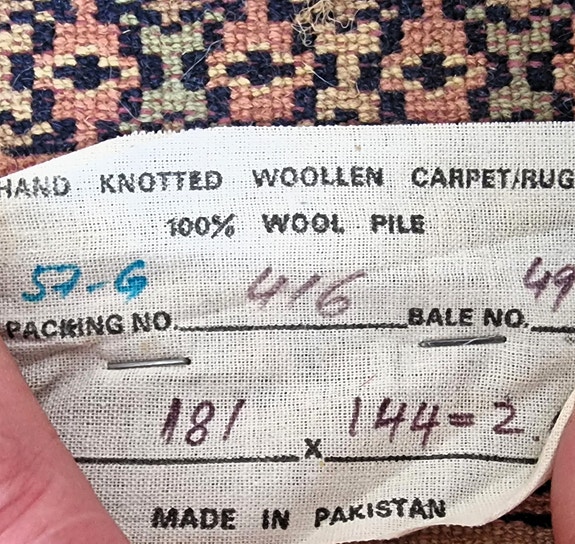 HAND KNOTTED WOOLLEN CARPET/RUG
100% WOOL PILE
57-G 416 49
PACKING NO. BALE NO.
181 x 144=2
MADE IN PAKISTAN